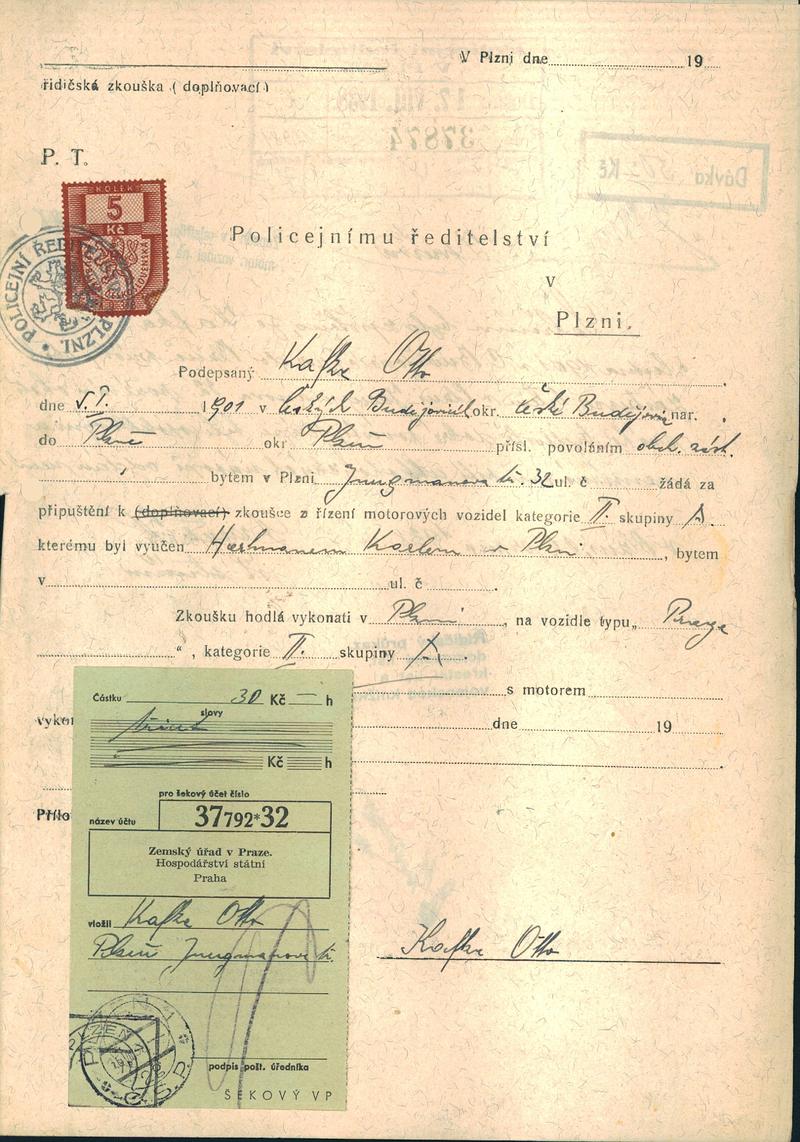 V Plzni dne 19
řidičská zkouška ( doplňovací )
P. T.
KOLEK
5
Kč
POLICEJNÍ ŘEDITELSTVÍ PLZNI
Policejnímu ředitelství
v
Plzni.
Podepsaný Kafka Otto
dne 5.I. 1901 v českých Budějovicích okr. České Budějovice nar.
do Plzně okr Plzeň přísl. povoláním obch. zást.
bytem v Plzni Jungmanova tř. 32 ul. č žádá za
připuštění k (doplňovací) zkoušce z řízení motorových vozidel kategorie II. skupiny A.
kterému byl vyučen Heřmanem Karlem v Plzni, bytem
v ul. č .
Zkoušku hodlá vykonati v Plzni, na vozidle typu „ Praga
“, kategorie II. skupiny A.
s motorem
vykon dne 19
Přílo
Částku 30 Kč — h
slovy
třicet
Kč h
pro šekový účet číslo
37792*32
název účtu
Zemský úřad v Praze.
Hospodářství státní
Praha
vložil Kafka Otto
Plzeň Jungmanova tř.
PLZEŇ 1
podpis pošt. úředníka
ŠEKOVÝ VP
Kafka Otto
37874
Dávka Kč